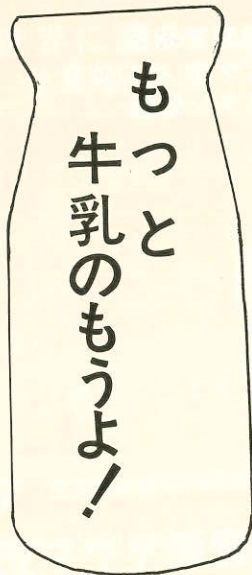 もつと
牛乳のもうよ！